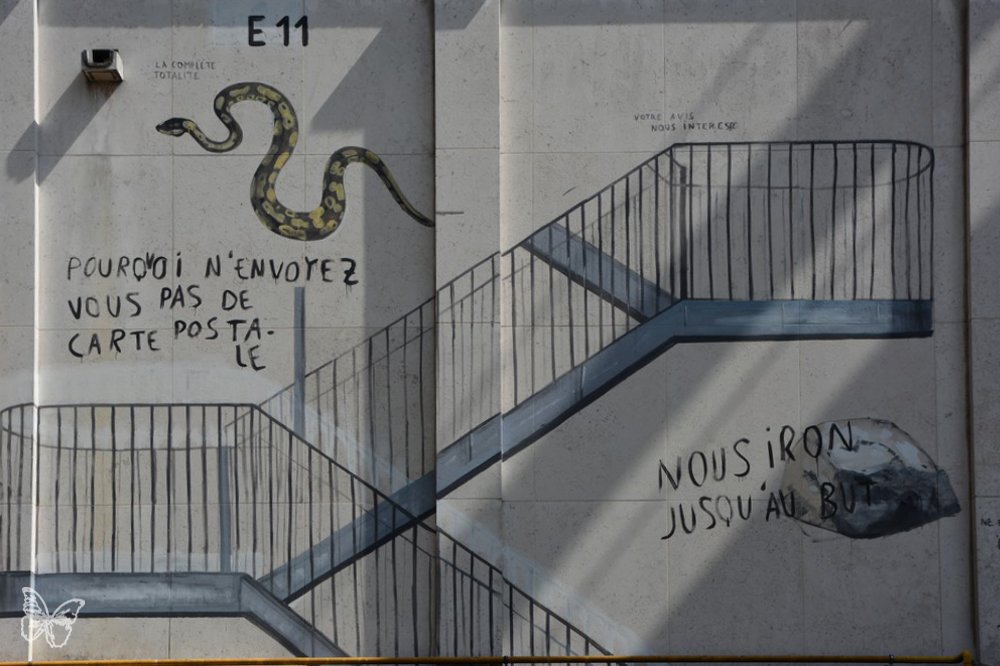 E 11
LA COMPLETE
TOTALITE
VOTRE AVIS
NOUS INTERESSE
POURQUOI N'ENVOYEZ
VOUS PAS DE
CARTE POSTA-
LE
NOUS iRON
JUSQU'AU BUT